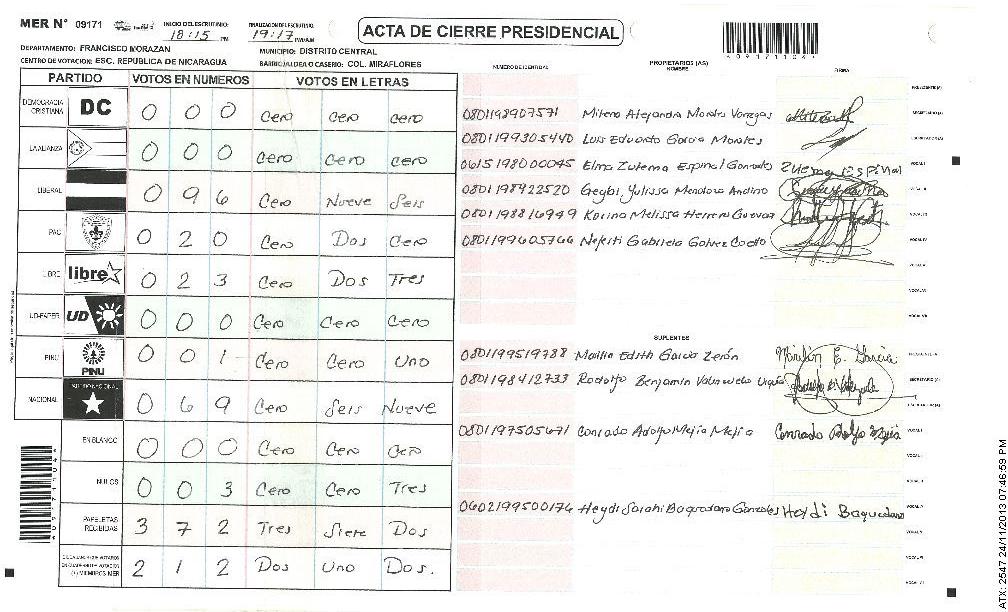 MER N° 09171
INICIO DEL ESCRUTINIO: 18:15 PM
FINALIZACION DEL ESCRUTINIO: 19:17 PM/AM
ACTA DE CIERRE PRESIDENCIAL
DEPARTAMENTO: FRANCISCO MORAZAN
MUNICIPIO: DISTRITO CENTRAL
CENTRO DE VOTACION: ESC. REPUBLICA DE NICARAGUA
BARRIO/ALDEA O CASERIO: COL. MIRAFLORES
PARTIDO VOTOS EN NUMEROS VOTOS EN LETRAS
DEMOCRACIA CRISTIANA DC 0 0 0 Cero Cero Cero
LA ALIANZA 0 0 0 Cero Cero Cero
LIBERAL 0 9 6 Cero Nueve Seis
PAC 0 2 0 Cero Dos Cero
LIBRE libre 0 2 3 Cero Dos Tres
UD-FAPER UD 0 0 0 Cero Cero Cero
PINU PINU 0 0 1 Cero Cero Uno
NACIONAL PARTIDO NACIONAL 0 6 9 Cero Seis Nueve
EN BLANCO 0 0 0 Cero Cero Cero
NULOS 0 0 3 Cero Cero Tres
PAPELETAS RECIBIDAS 3 7 2 Tres Siete Dos
(+) MIEMBROS MER 2 1 2 Dos Uno Dos.
NUMERO DE IDENTIDAD PROPIETARIOS (AS) NOMBRE FIRMA
PRESIDENTE (A)
0801198907571 Milena Alejandra Morales Vanegas SECRETARIO (A)
0801199305440 Luis Eduardo Garcia Morales ESCRUTADOR (A)
0615198000045 Elma Zulema Espinal Gonzales Zulema Espinal VOCAL I
0801198922520 Geybi Yulissa Mendoza Andino VOCAL II
0801198816949 Karina Melissa Herrera Guevas VOCAL III
0801199605766 Nefriti Gabriela Galvez Coello VOCAL IV
VOCAL V
VOCAL VI
VOCAL VII
SUPLENTES
0801199519788 Mailin Edith Garcia Zerón Mailin E. Garcia PRESIDENTE (A)
0801198412733 Rodolfo Benjamin Valenzuela SECRETARIO (A)
ESCRUTADOR (A)
0801197505671 Conrado Adolfo Mejia Mejia Conrado Adolfo Mejia VOCAL I
VOCAL II
VOCAL III
0602199500174 Heydi Sarahi Baquedano Gonzales Heydi Baquedano VOCAL IV
VOCAL V
VOCAL VI
VOCAL VII
ATX: 2547 24/11/2013 07:46:59 PM